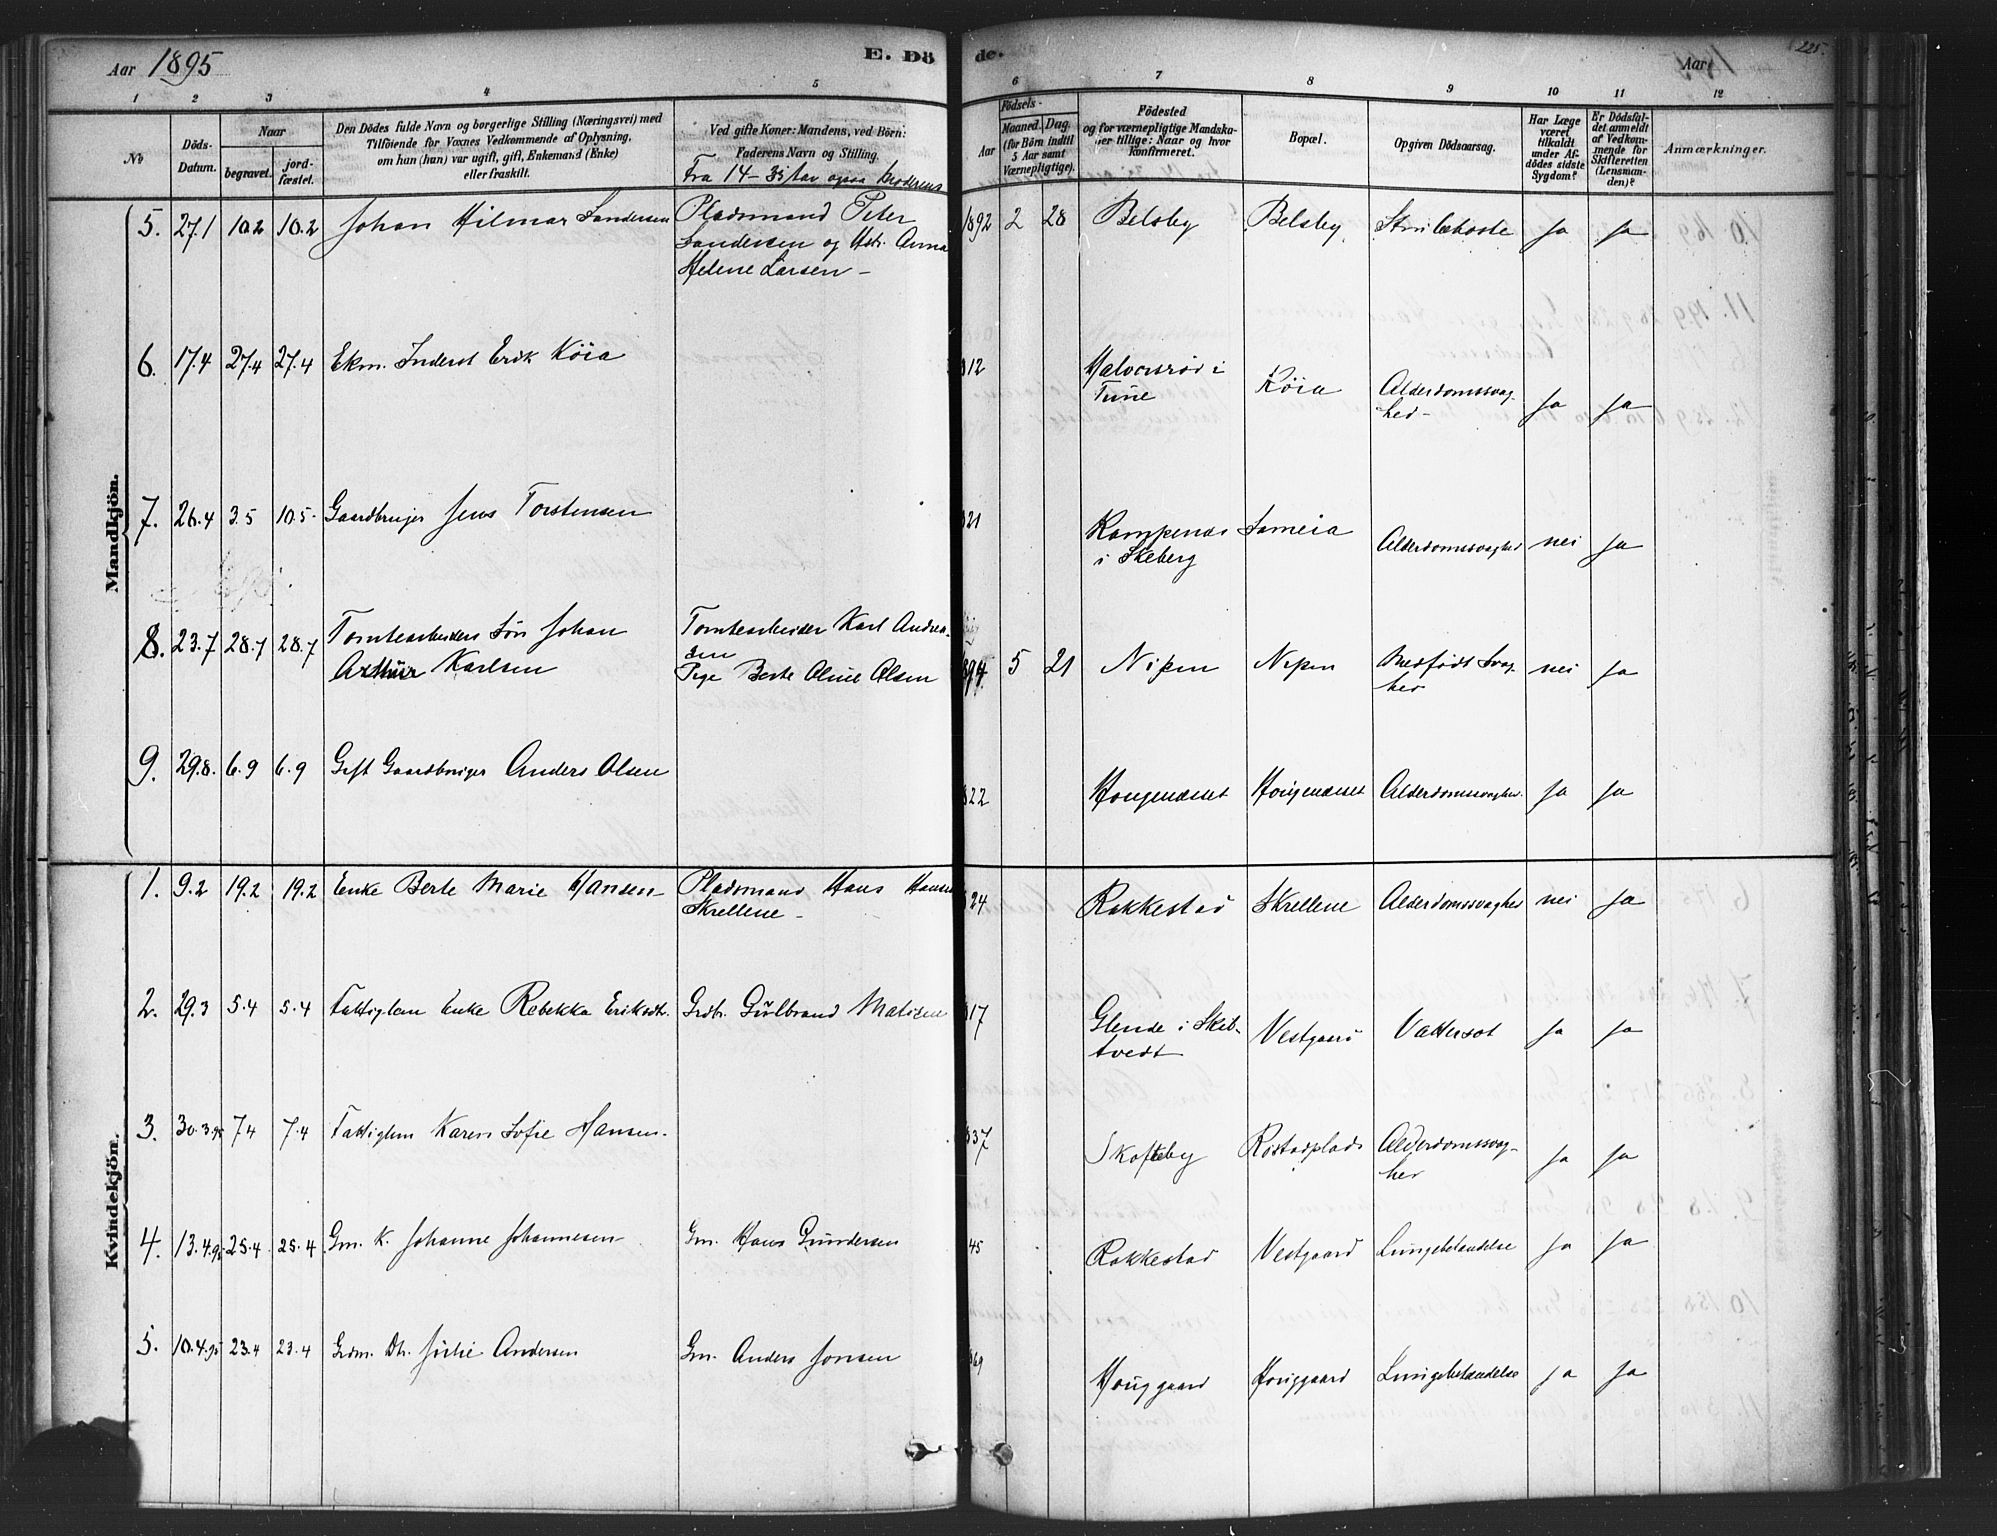 Aar 1895
E. Dö
de.
Aar
225.
1 2 3 4 5 6 7 8 9 10 11 12
No
Döds-
Datum.
Naar
begravet.
jord-
fæstet.
Den Dödes fulde Navn og borgerlige Stilling (Næringsvei) med
Tilföiende for Voxnes Vedkommende af Oplysning,
om han (hun) var ugift, gift, Enkemand (Enke)
eller fraskilt.
Ved gifte Koner: Mandens, ved Börn:
Faderens Navn og Stilling.
Fra 14-33 tav ogsaa Moderens
Födsels-
Aar
Maaned. Dag.
(for Börn indtil
5 Aar samt
Værnepligtige).
Födested
og for værnepligtige Mandska-
ber tillige: Naar og hvor
konfirmeret.
Bopæl.
Opgiven Dödsaarsag.
Har Læge
været
tilkaldt
under Af-
dödes sidste
Sygdom?
Er Dödsfal-
det anmeldt
af Vedkom-
mende for
Skifteretten
(Lensman-
den)?
Anmærkninger.
Mandkjön.
5. 27.1 10.2 10.2 Johan Hilmar Sandersen Pladsmand Peter
Sandersen og Hstr. Anna
Helene Larsen -
1892 2 28 Belsby Belsby. Strubehoste Ja Ja
6. 17.4 27.4 27.4 Ekm. Inderst Erik Köia
812 Halvorsröd i
Tune
Köia Alderdomssvag-
hed- Ja Ja
7. 26.4 3.5 10.5. Gaardbruger Jens Torstensen
821 Kampenæs
i Skeberg
Sameia Alderdomssvaghed nei Ja
8. 23.7 28.7 28.7 Tomtearbeiders Sön Johan
Arthur Karlsen
Tomtearbeider Karl Andrea-
sen
Pige Berte Oline Olsen
894 5 21 Nipen Nipen Medfödt Svag-
hed nei Ja
9. 29.8. 6.9 6.9 Gift Gaardbruger Anders Olsen
822 Hougenæsset Hougenæsset Alderdomssvaghed. Ja Ja
Kvindekjön.
1. 9.2 19.2 19.2 Enke Berte Marie Hansen Pladsmand Hans Hansen
Skrellene -
824 Rakkestad Skrellene Alderdomssvaghed nei Ja
2. 29.3 5.4 5.4 Fattiglem Enke Rebekka Eriksdtr. Grdbr. Gulbrand Matisen
817 Glende i Skib-
tvedt
Vestgaard Vattersot Ja Ja
3. 30.3.95 7.4 7.4 Fattiglem Karen Sofie Hansen.
837 Skofteby Röstadplads Alderdomssvag-
hed Ja Ja
4. 13.4.95 25.4 25.4 Gm. K. Johanne Johannesen Gm. Hans Gundersen
45 Rakkestad Vestgaard Lungebetændelse Ja Ja
5. 10.4.95 23.4 23.4 Grdm. Dtr. Julie Andersen Gm. Anders Jonsen
869 Houggaard Houggaard Lungebetændelse Ja Ja